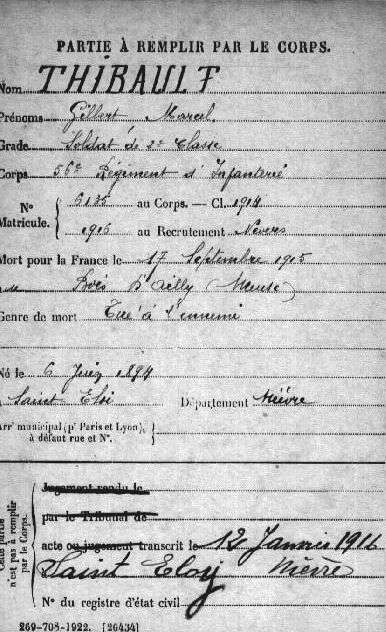 PARTIE À REMPLIR PAR LE CORPS.
Nom THIBAULT
Prénoms Gilbert Marcel
Grade Soldat de 2e Classe
Corps 56e Régiment d'Infanterie
N° Matricule. { 5135 au Corps. — Cl. 1914
1915 au Recrutement Nevers
Mort pour la France le 17 Septembre 1915
au Bois d'Ailly (Meuse)
Genre de mort Tué à l'ennemi
Né le 6 Juin 1894
à Saint Eloi Département Nièvre
Arr' municipal (p' Paris et Lyon), à défaut rue et N°. }
Cette partie n'est pas à remplir par le Corps.
Jugement rendu le
par le Tribunal de
acte ou jugement transcrit le 12 Janvier 1916
Saint Eloy Nièvre
N° du registre d'état civil
269-708-1922. [26434]